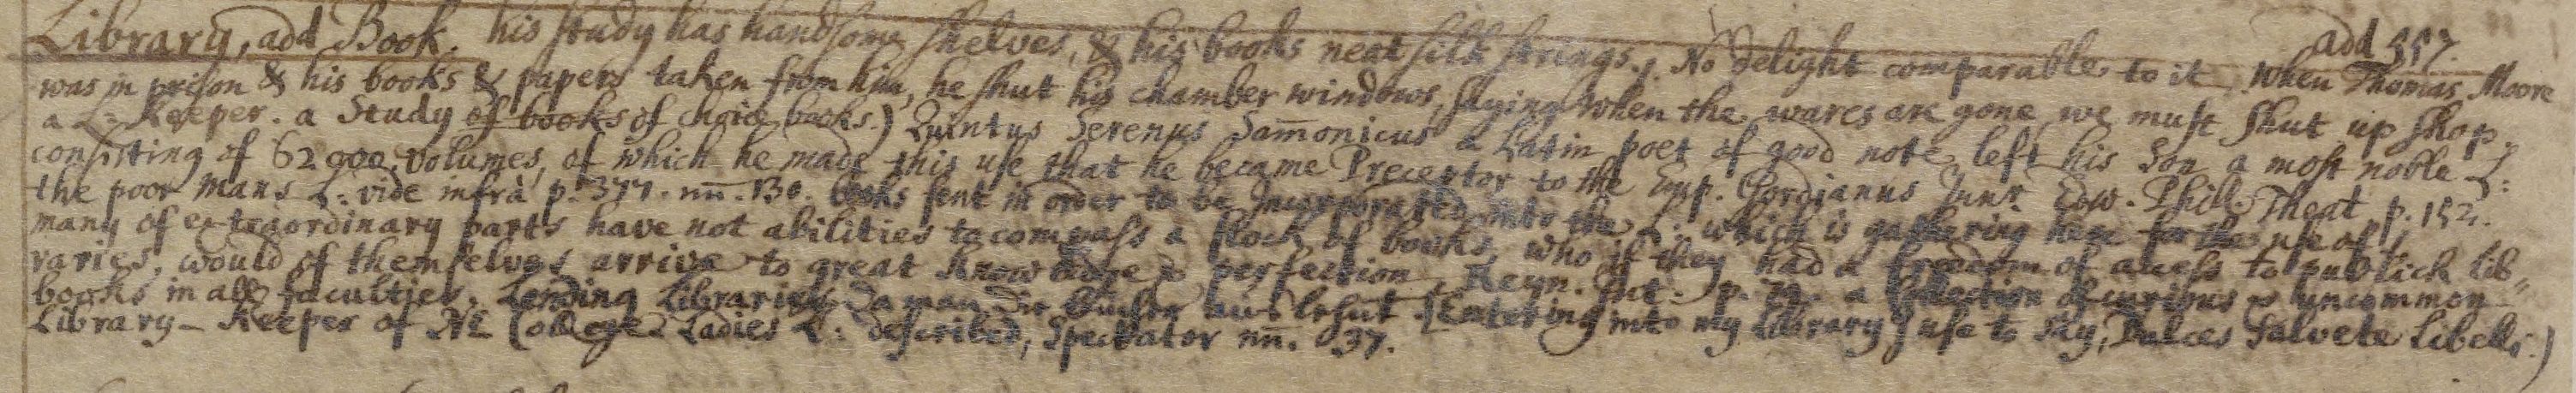 add 557.
Library, add Book. his study has handsome shelves, & his books neat silk strings. No delight comparable to it, when Thomas Moore
was in prison & his books & papers taken from him, he shut his chamber windows, saying when the wares are gone we must shut up shop.
a L: Keeper. a Study of books of choice books.) Quintus Serenus Sam̄onicus a Latin poet of good note left his Son a most noble L:
consisting of 62000 volumes, of which he made this use that he became Preceptor to the Emp. Gordianus Junr Edw. Phill. Theat p. 152.
the poor mans L: vide infrà p. 377. nn̄. 130. books sent in order to be Incorporated into the L: which is gathering here for the use of
many of extraordinary parts have not abilities to compass a stock of books, who if they had a freedom of access to publick Lib„
raries, would of themselves arrive to great knowledge & perfection, Reyn. p. a Collection of curious & uncommon
books in all faculties. Lending Libraries, da man die bücher aus lehnt. [Entering into my Library I use to say, Dulces Salvete Libelli.)
Library-Keeper of College Ladies L: described, Spectator nn̄. 37.